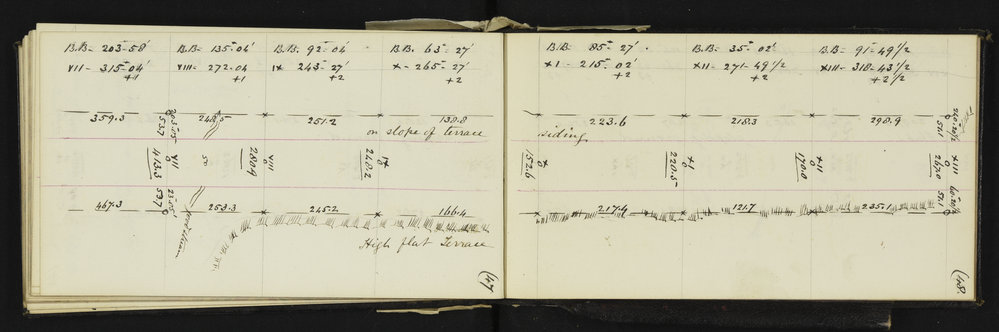 B.B- 203-58' B.B- 135-04' B.B. 92-04' B.B. 63-27'
VII- 315-04' VIII- 272-04 IX 243-27' X- 265-27'
+1 +1 +2 +2
359.3 248.5 251.2 138.8
on slope of terrace
537
VII
413.3
VIII
280.9
240.2
537
467.3 253.3 245.2 166.4
High flat Terrace
(47
B.B. 85-27' B.B- 35-02' B.B- 91-49 1/2
XI- 215-02' XII- 271-49 1/2 XIII- 318-43 1/2
+2 +2 +2 1/2
223.6 218.3 290.9
siding
152.6
XI
220.5
XII
170.0
XIII
267.0
521
521
217.4 121.7 235.1
(48.